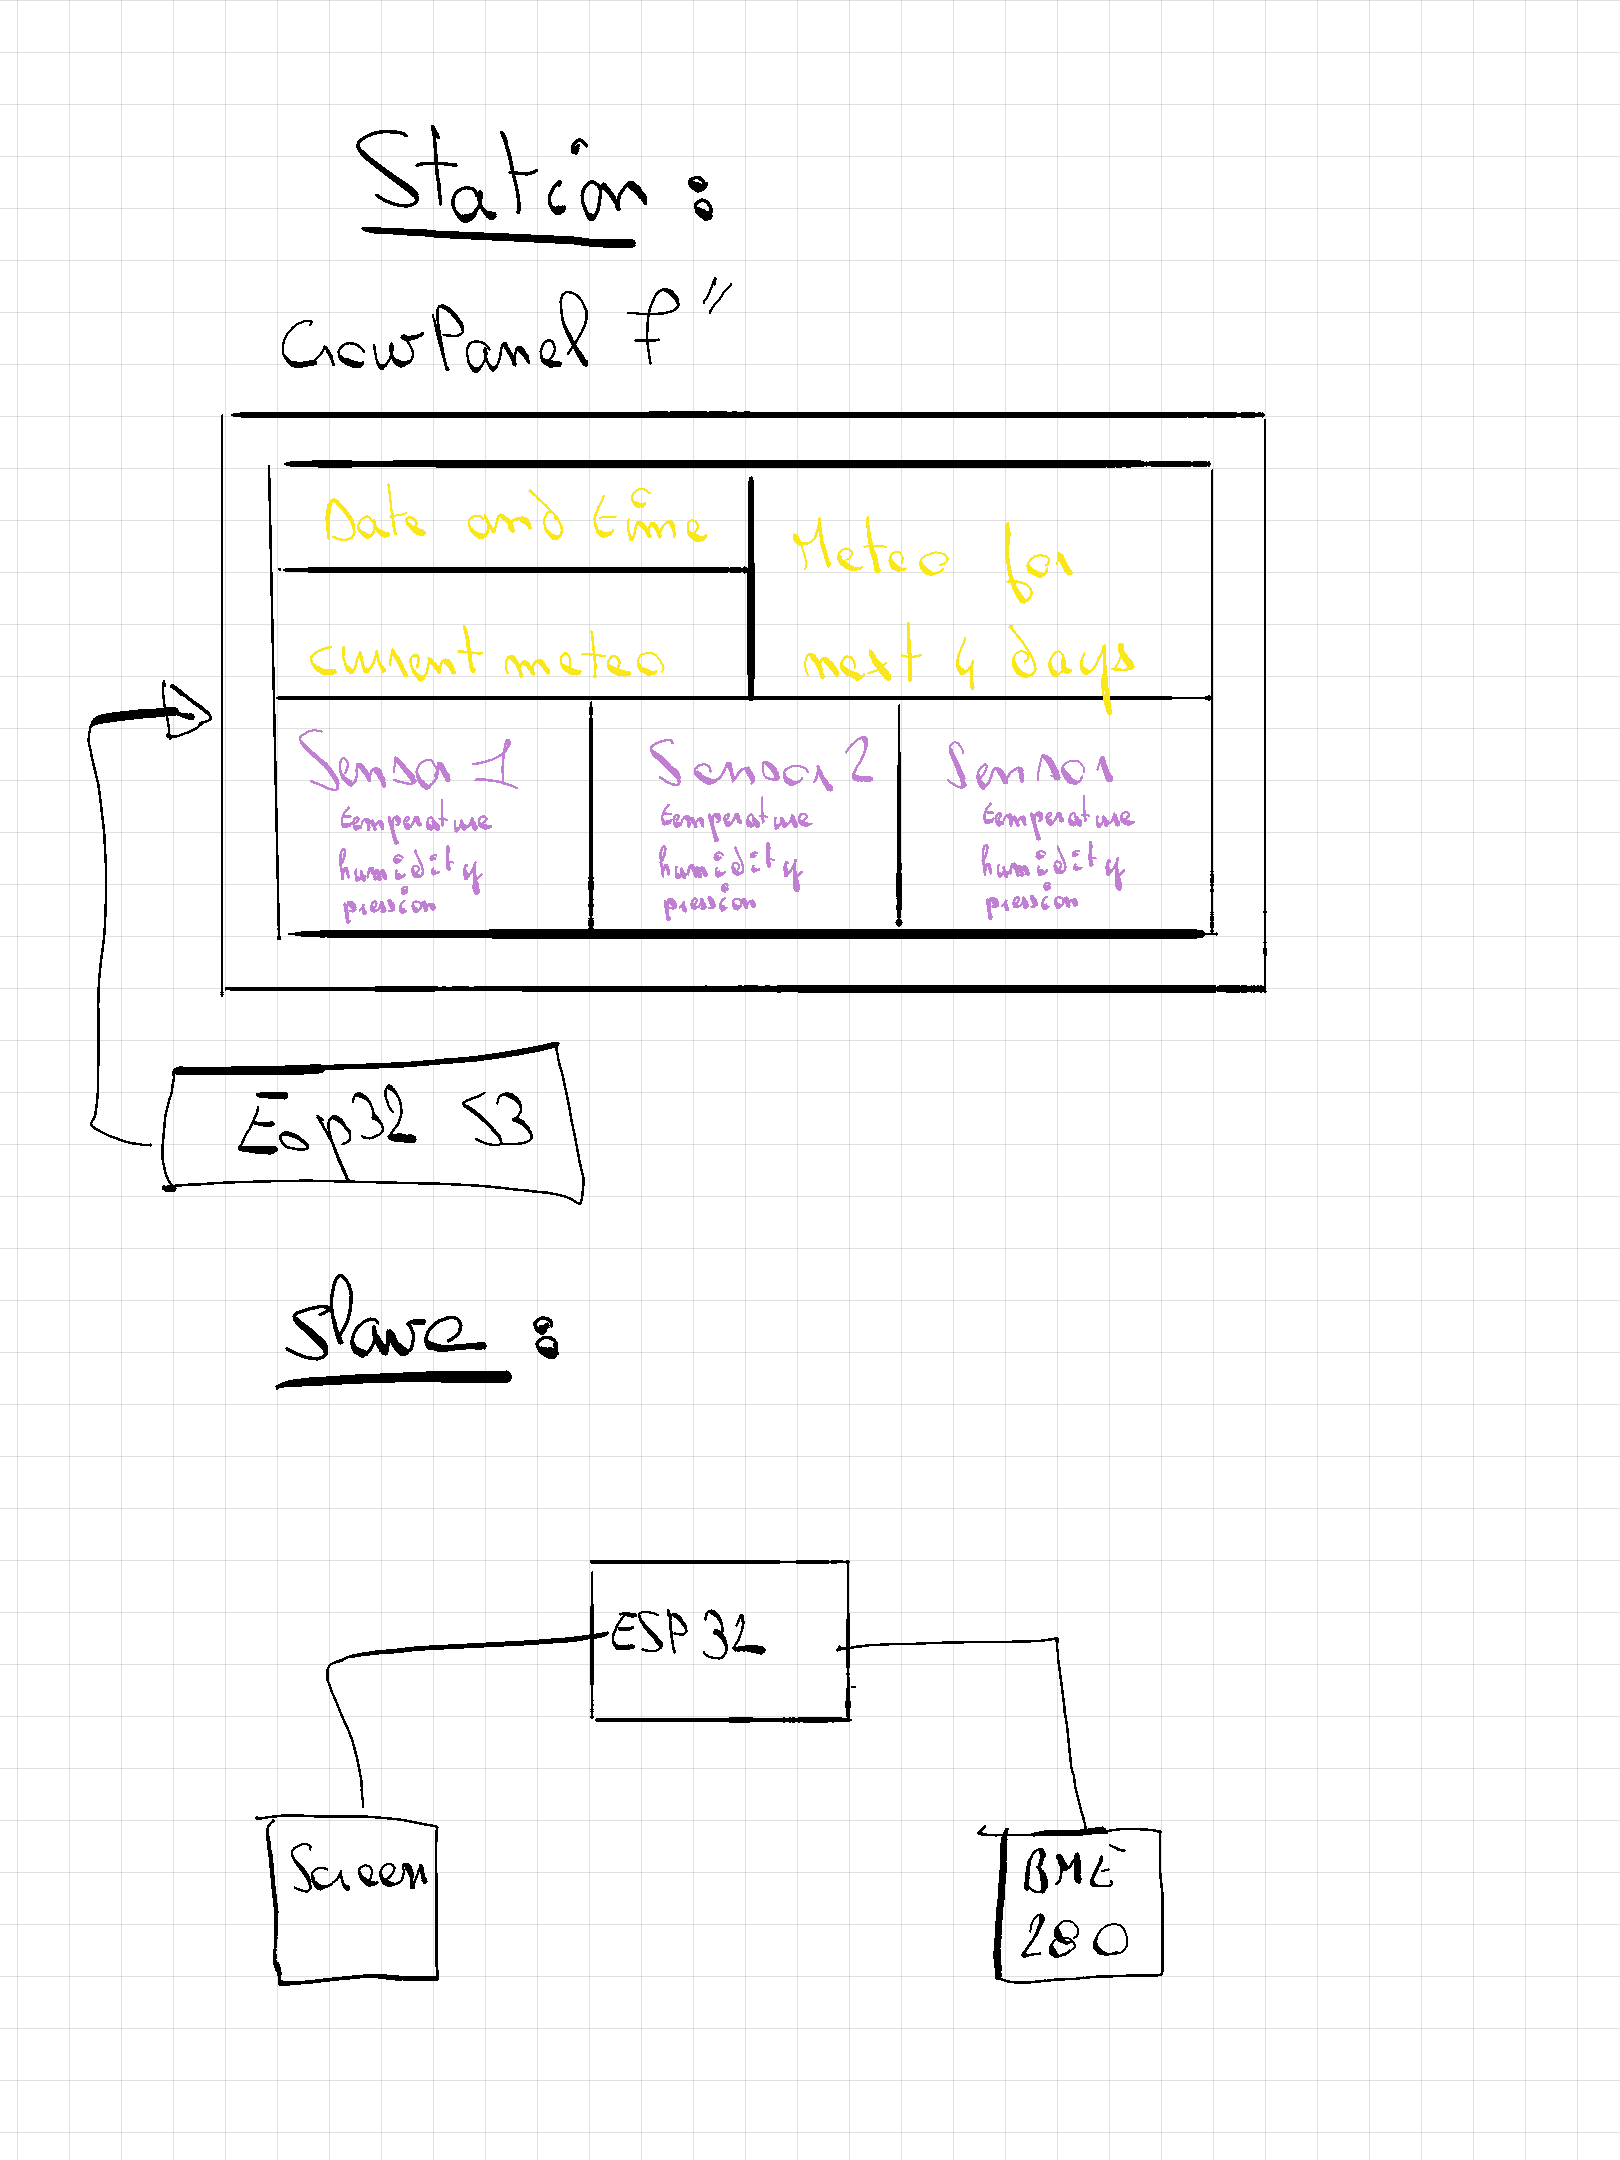 Station :
CrowPanel 7"
Date and time
Meteo for
current meteo
next 4 days
Sensor 1
temperature
humidity
pression
Sensor 2
temperature
humidity
pression
Sensor
temperature
humidity
pression
Esp32 S3
Slave :
ESP32
Screen
BME
280